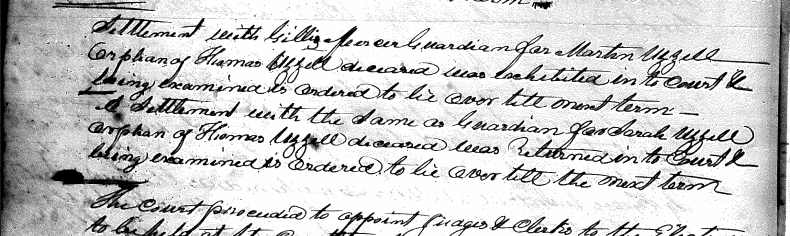 Settlement with Gillis Mercer Guardian for Martin Uzzell
Orphan of Thomas Uzzell deceased was exhibited in to Court &
being examined is ordered to lie over till next term —
A Settlement with the Same as Guardian for Sarah Uzzell
Orphan of Thomas Uzzell deceased was Returned in to Court &
being examined is ordered to lie over till the next term
The Court proceeded to appoint Judges & Clerks to the
to be held at the